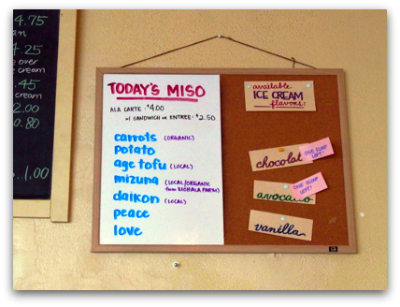 4.75
4.25
over
cream
.45
cream
2.00
0.80
1.00
TODAY'S MISO
ALA CARTE - $4.00
w/ SANDWICH or ENTREE - $2.50
carrots (ORGANIC)
potato
age tofu (LOCAL)
mizuna (LOCAL/ORGANIC
daikon (LOCAL)
peace
love
available
ICE CREAM
flavors:
chocolat
ONE SCOOP
LEFT!
avocado
ONE SCOOP
LEFT!
vanilla